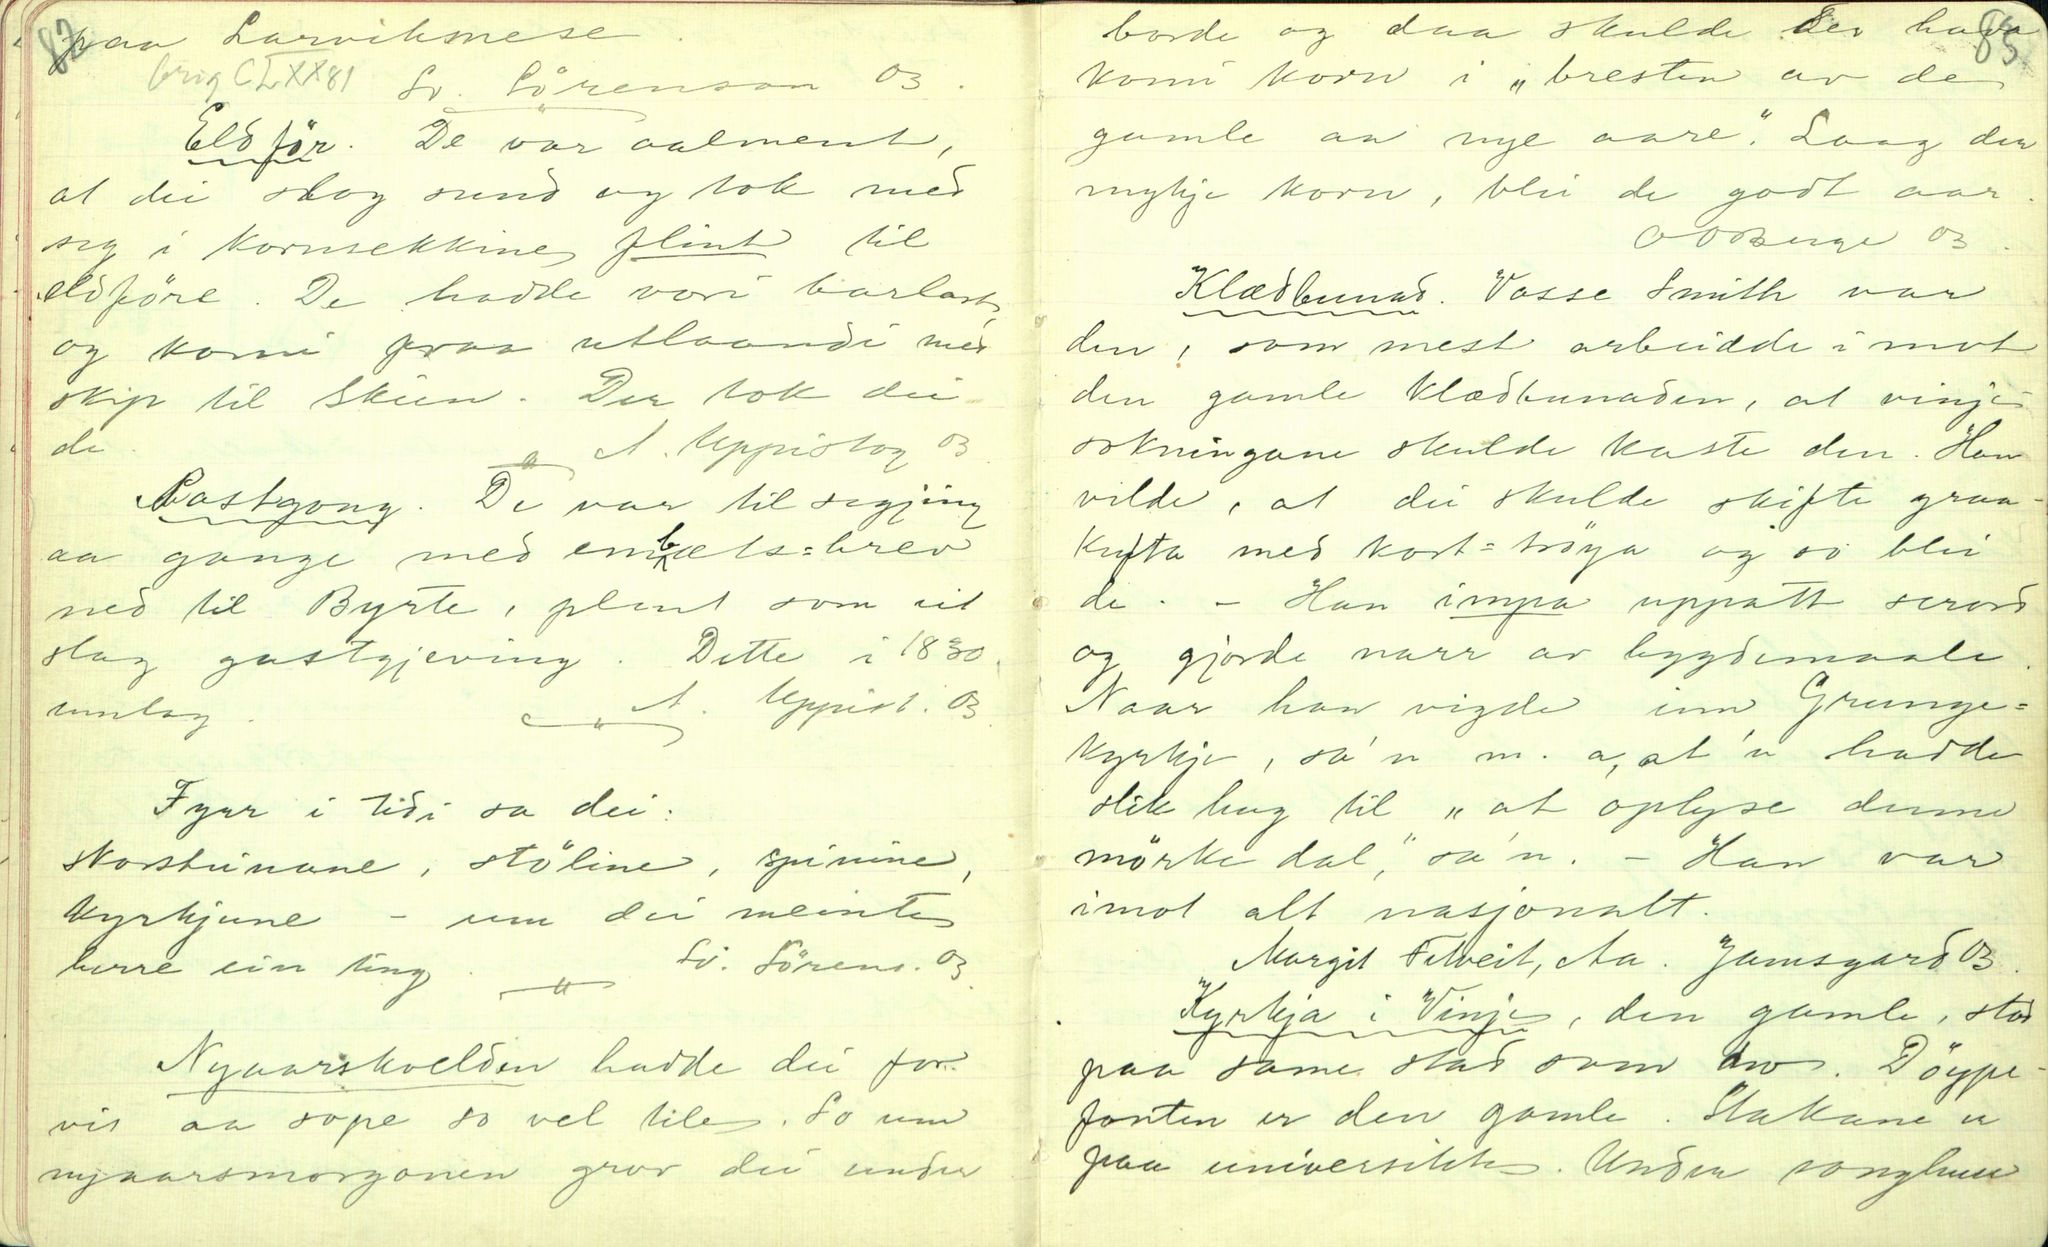 82
paa Larviksnese.
brig CLXX81 Sv. Sörenson 03.
Eldför. De var aalment,
at dei slog sund og tok med
seg i kornsekkine flint til
eldföre. De hadde vori barlast,
og komi fraa utlaandi med
skip til Skien. Der tok dei
de. A. Uppistog 03
Postgong. De var til segjing
aa gange med embæts=brev
ned til Byrte, plent som eit
slag gastgjeving. Dette i 1830
umlag. A. Uppist. 03.
Fyrr i tidi sa dei:
skorsteinane, stöline, spinine,
kyrkjune - um dei meinte
berre ein ting. Sv. Sörens. 03.
Nyaarskvelden hadde dei for-
vis aa sope so vel tile. So um
nyaarsmorgonen grov dei under
83
borde og daa skulde der hava
komi korn i „bresten av de
gamle aa nye aare". Laag der
mykje korn, blei de godt aar.
O O Berge 03.
Klædbunad. Vosse Smith var
den, som mest arbeidde imot
den gamle klædbunaden, at vinje-
sokningane skulde kaste den. Han
vilde, at dei skulde skifte graa-
kufta med kort=tröya og so blei
de. - Han impa uppatt serord
og gjorde narr av bygdemaale.
Naar han vigde inn Grunge=
kyrkje, sa'n m. a, at'n hadde
slik hug til „at oplyse denne
mörke dal," sa'n. - Han var
imot alt nasjonalt.
Margit Felveit, Aa. Jamsgard 03.
Kyrkja i Vinje, den gamle, stod
paa same stad som no. Döype-
fonten er den gamle. Stakane er
paa universitete. Under songhuse